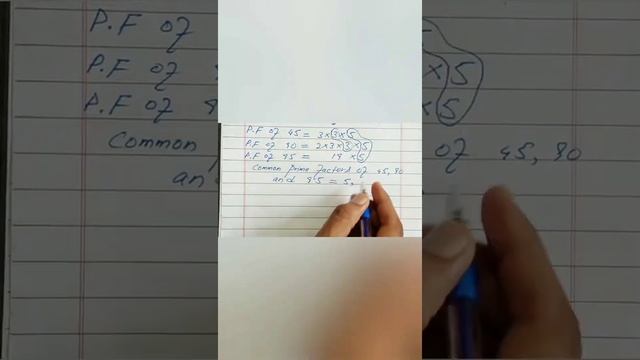 P.F of 45 = 3×3×5
P.F of 90 = 2×3×3×5
P.F of 95 = 19 ×5
Common prime factors of 45, 90
and 95 = 5,
P.F of
P.F of
P.F of 9
Common
an
×5
×5
of 45, 90